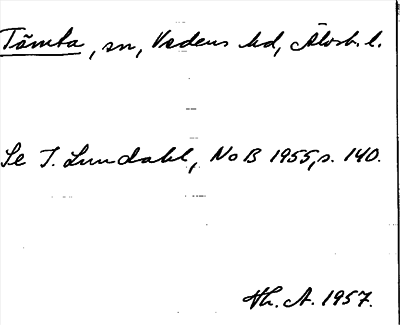 Tämta, sn, Vedens hd, Älvsb. l.
Se I. Lundahl, NoB 1955, s. 140.
Th. A. 1957.